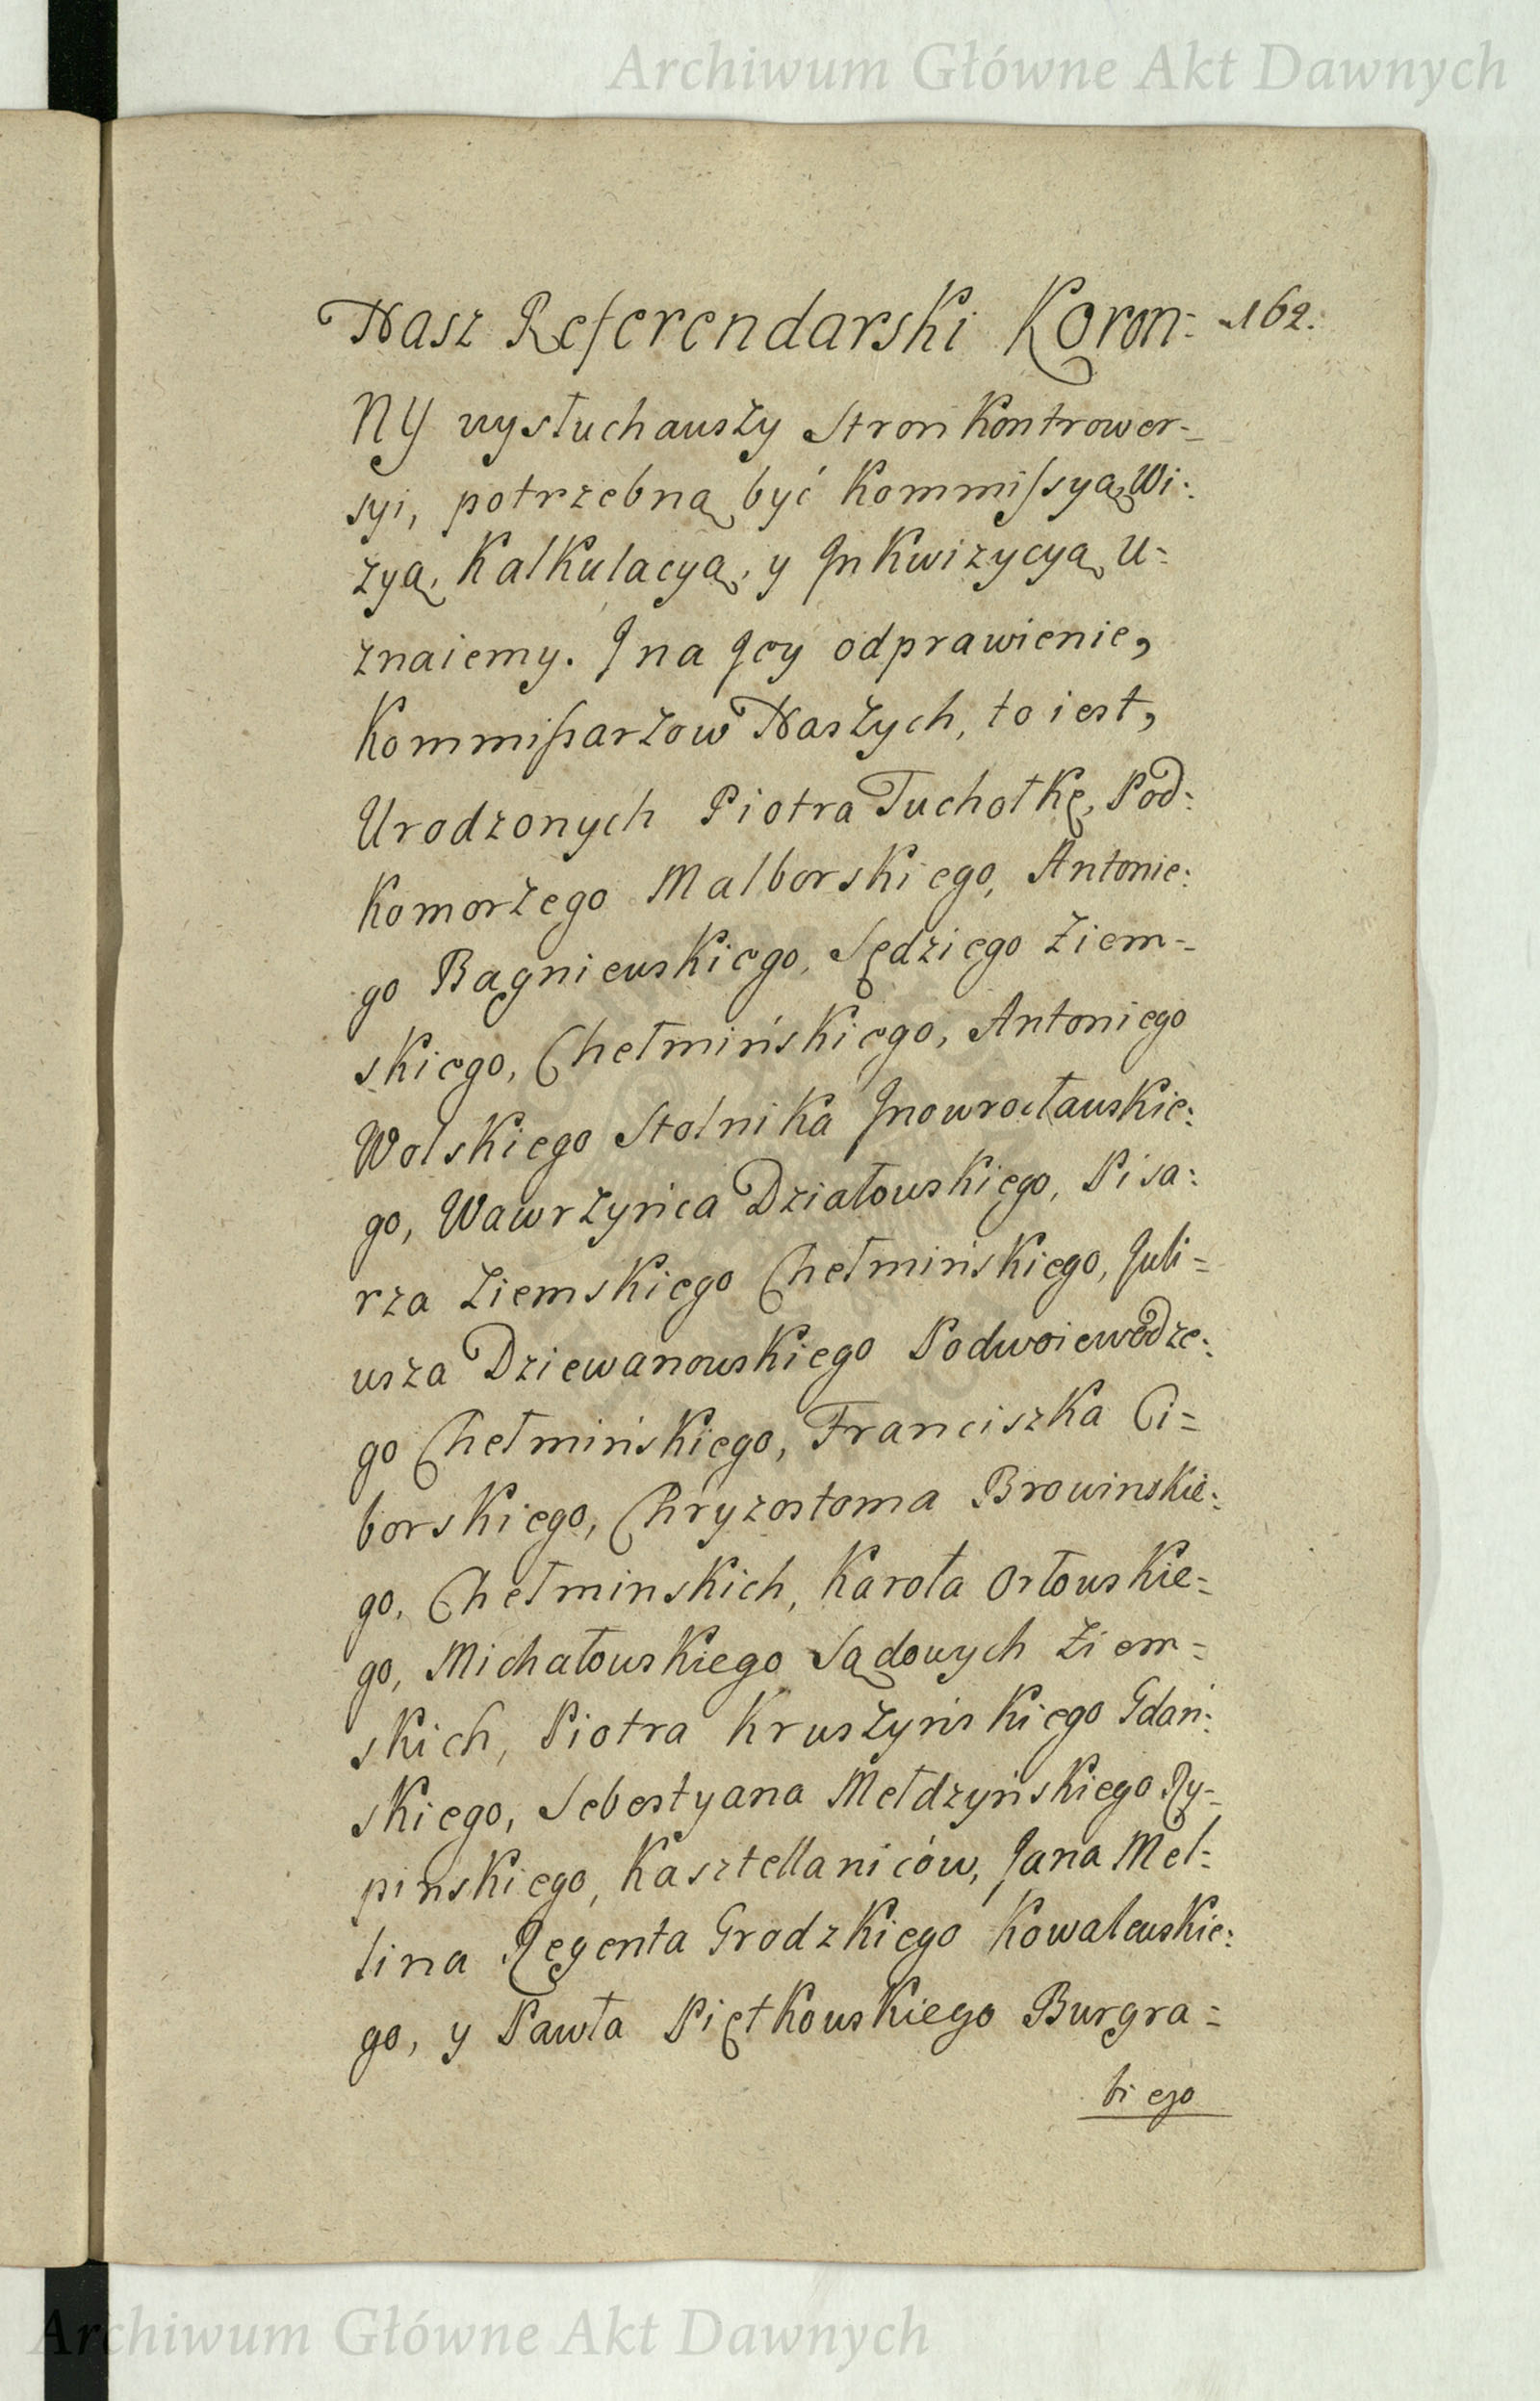 Archiwum Główne Akt Dawnych
Nasz Referendarski Koron: 162.
NY wysłuchawszy Stron Kontrower=
syi, potrzebną być Kommissyą, Wi:
zyą, Kalkulacyą, y Inkwizycyą U=
znaiemy. I na Jey odprawienie,
Kommissarzow Naszych, to iest,
Urodzonych Piotra Tuchołkę, Pod:
Komorzego Malborskiego, Antonie:
go Bagniewskiego, Sędziego Ziem=
skiego, Chełmińskiego, Antoniego
Wolskiego Stolnika Inowrocławskie:
go, Wawrzyńca Działowskiego, Pisa:
rza Ziemskiego Chełmińskiego, Juli=
usza Dziewanowskiego Podwoiewodze:
go Chełmińskiego, Franciszka Ci=
borskiego, Chryzostoma Browinskie:
go, Chełminskich, Karola Orłowskie=
go, Michałowskiego Sądowych Ziem=
skich, Piotra Kruszyńskiego Gdań:
skiego, Sebestyana Mełdzyńskiego Ry=
pinskiego, Kasztellaniców, Jana Mel:
lina Regenta Grodzkiego Kowalewskie:
go, y Pawła Piętkowskiego Burgra=
biego
Archiwum Główne Akt Dawnych